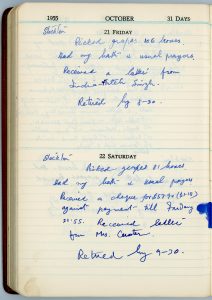 1955 OCTOBER 31 DAYS
21 FRIDAY
Stockton
Picked grapes 10 6 hours
Had my bath & usual prayers
Received a letter from
India Singh.
Retired by 8-30.
22 SATURDAY
Stockton
Picked grapes 8 hours
Had my bath & usual prayer
Received a cheque for
against payment till Friday
Received letter
from Mrs.
Retired by 9-30.